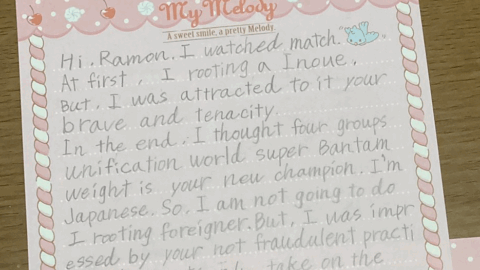 My Melody
A sweet smile, a pretty Melody
Hi, Ramon. I watched match.
At first, I rooting a Inoue,
But, I was attracted to it your
brave and tenacity
In the end, I thought four groups
unification world super Bantam
weight is your new champion. I'm
Japanese. So, I am not going to do
I rooting foreigner. But, I was impr
essed by your not fraudulent practi
take on the